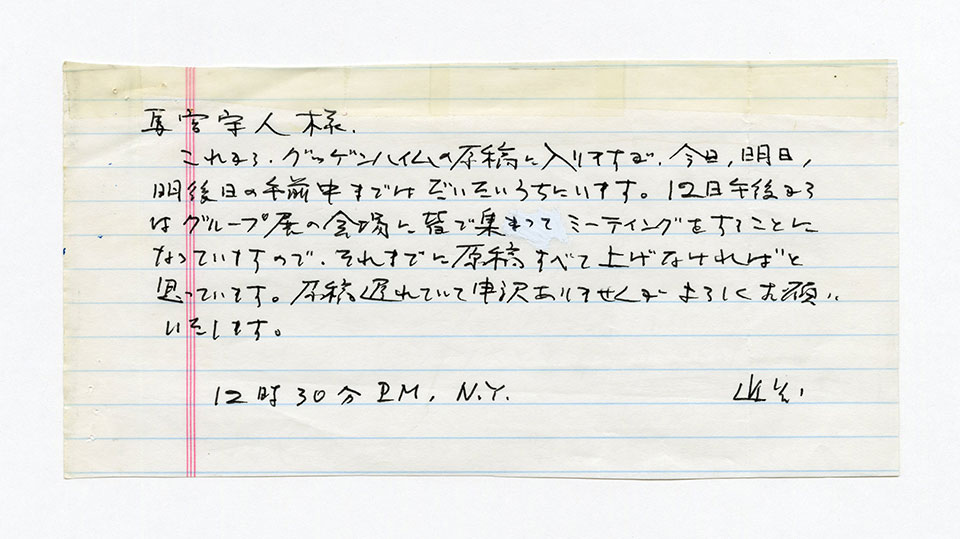 馬宮守人様.
これから、グッゲンハイムの原稿に入りますが、今日,明日,
明後日の午前中まではだいたいうちにいます。12日午後から
はグループ展の会場に皆で集まってミーティングをすることに
なっていますので、それまでに原稿すべて上げなければと
思っています。原稿遅れていて申訳ありませんがよろしくお願い
いたします。
12時30分PM, N.Y.